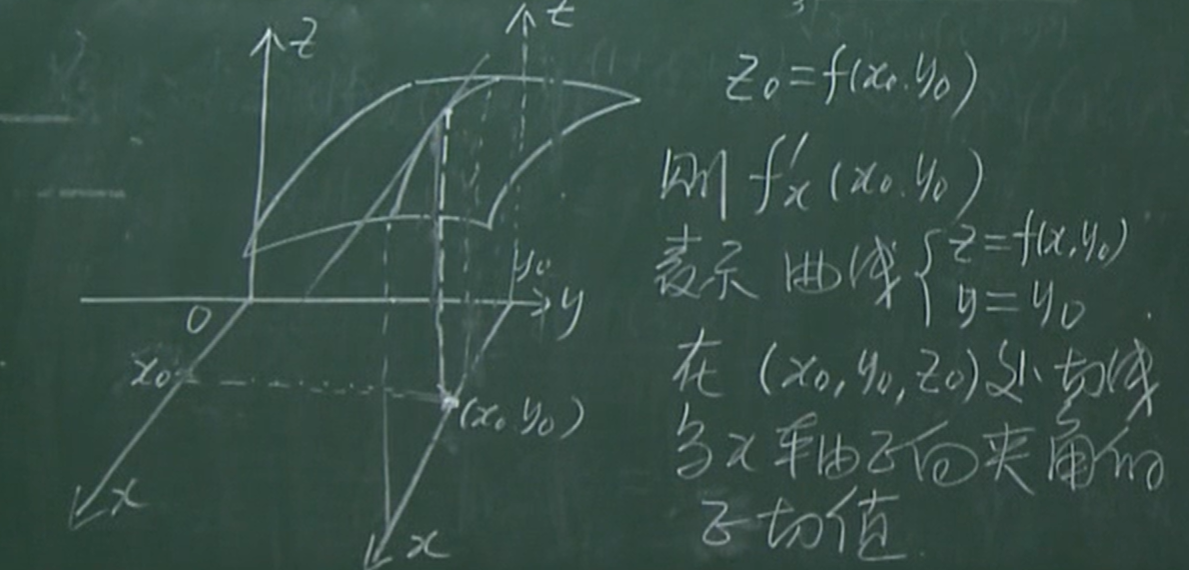 z
z
y₀
0
y
x₀
(x₀.y₀)
x
x
z₀=f(x₀.y₀)
则 f'ₓ(x₀.y₀)
表示 曲线 { z=f(x,y₀)
y=y₀
在 (x₀,y₀,z₀)处切线
与x轴正向夹角的
正切值.